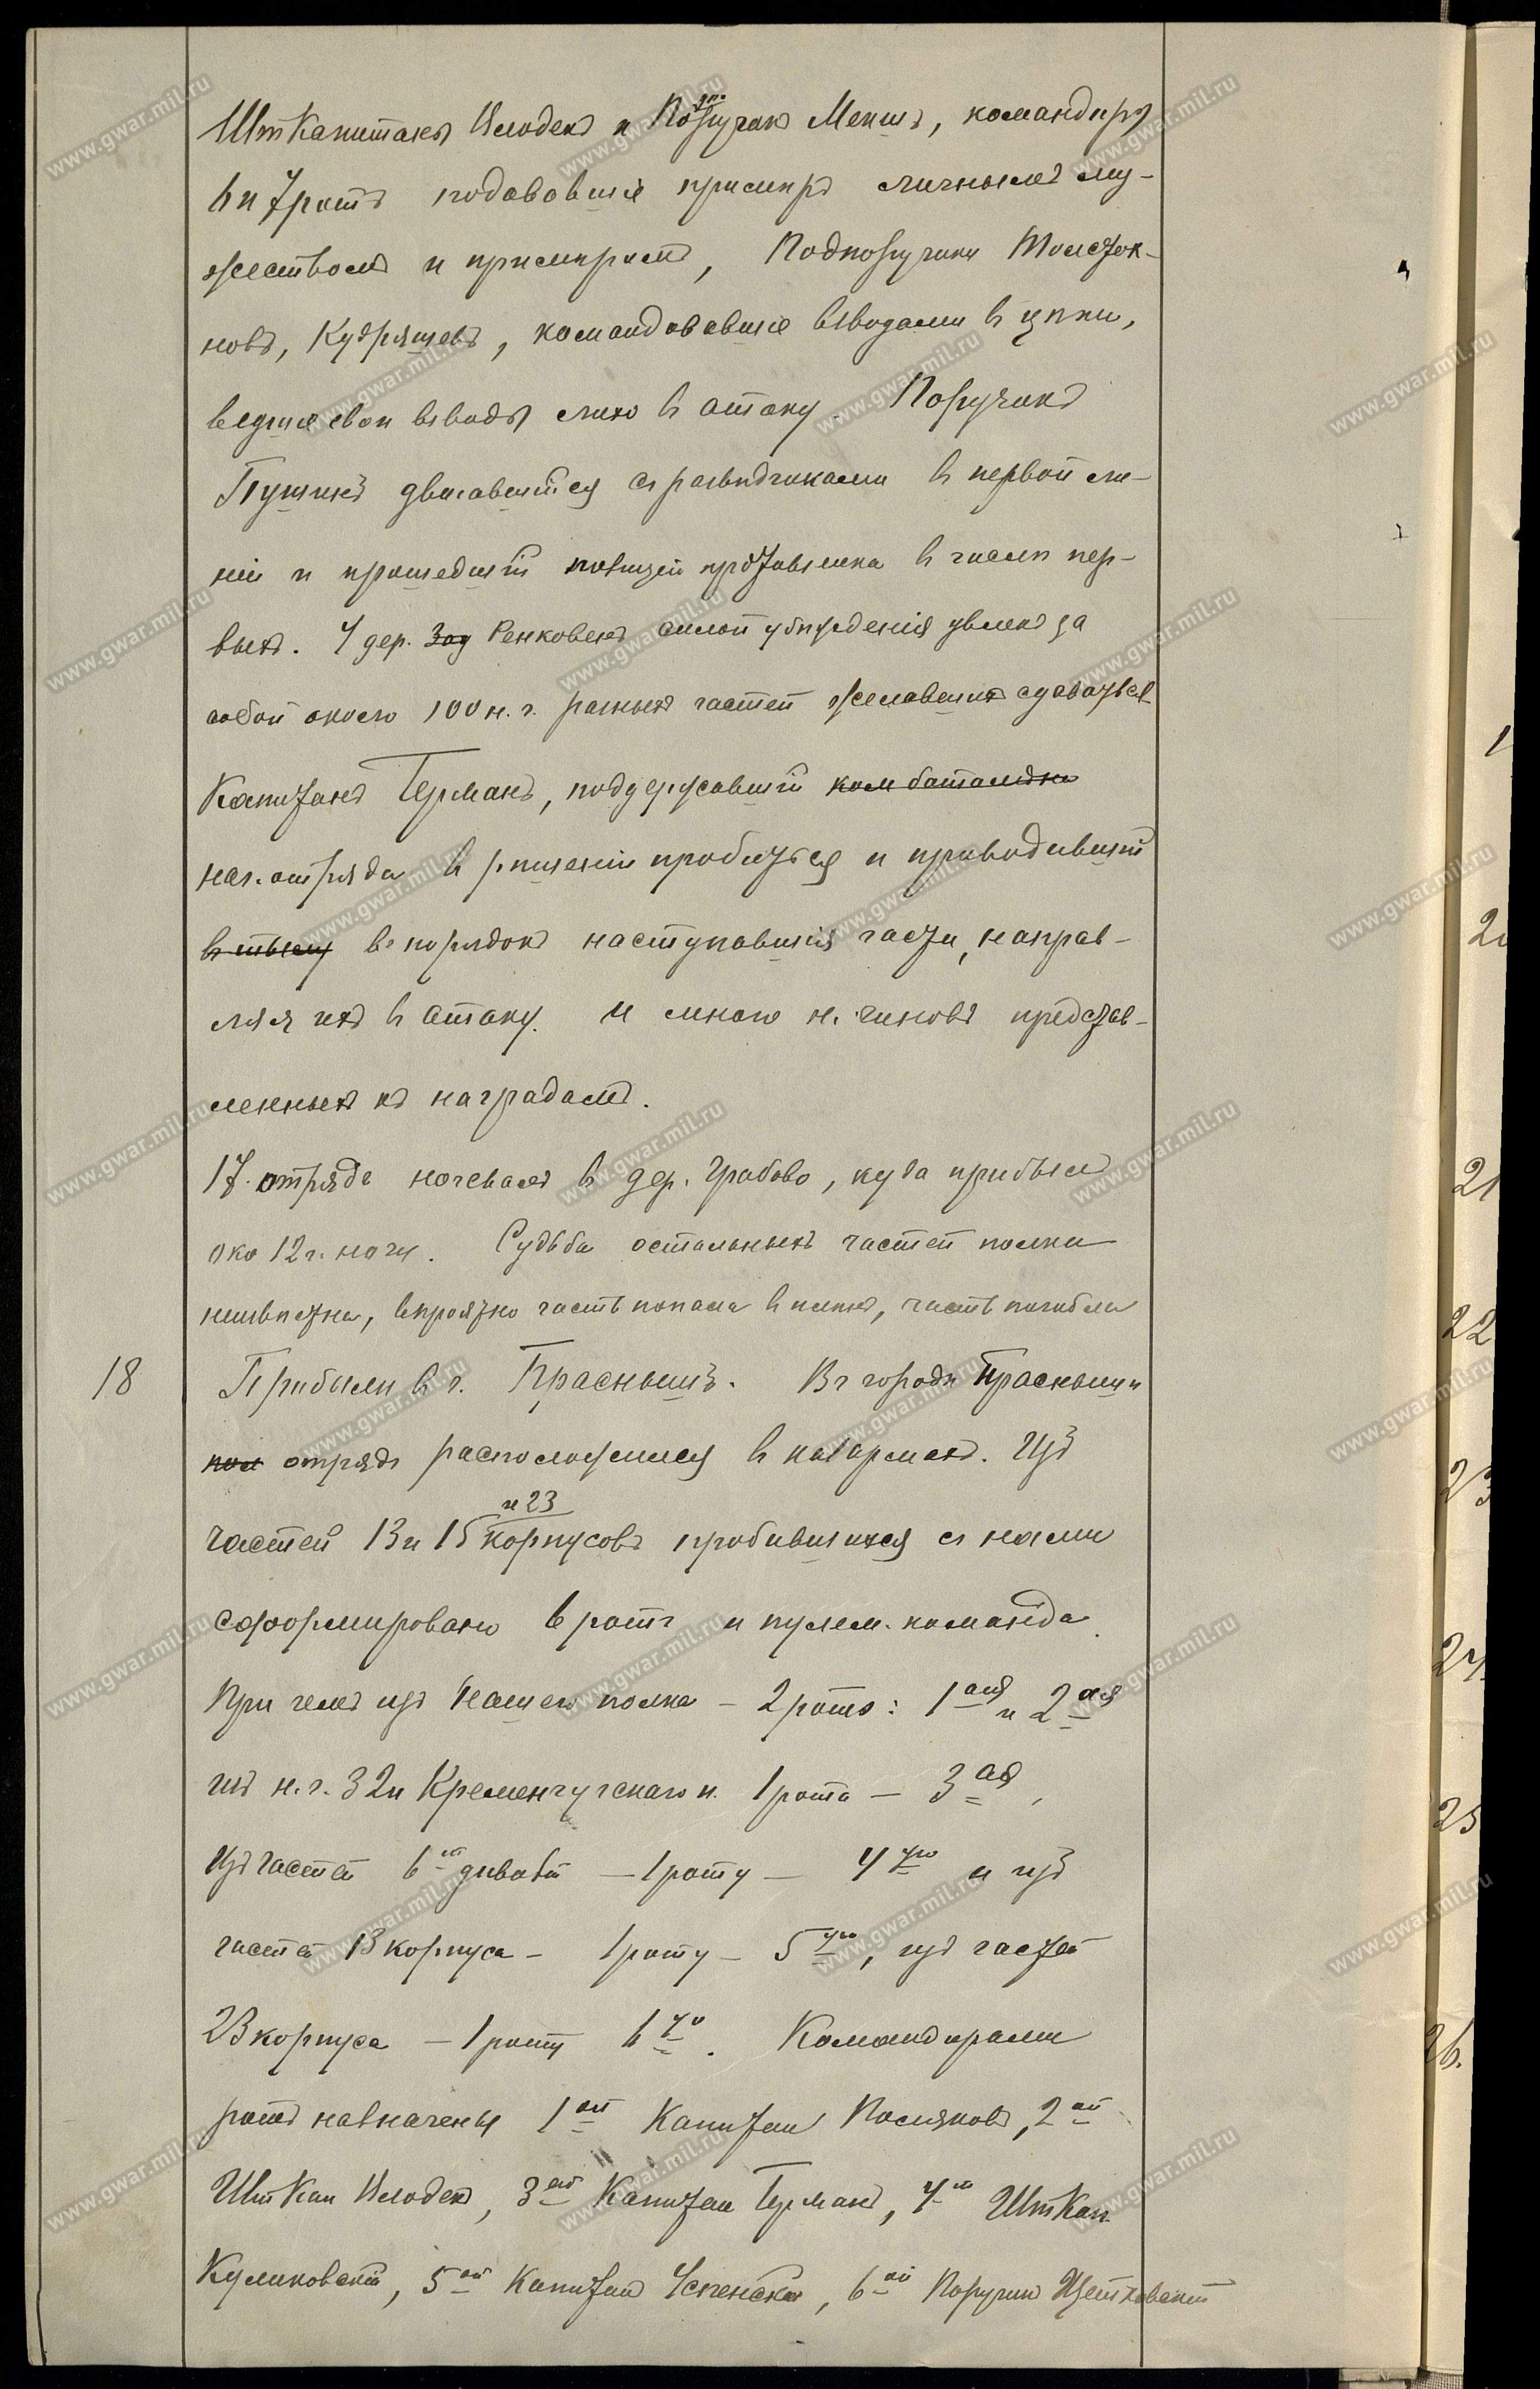 ШтКапитаны Илодек и Подпоручик Мекш, командиры
6 и 7 рот подававшіе примѣр личным му-
жеством и примѣром, Подпоручики Толстok-
нов, Кудряшев, командовавшіе взводами в цѣпи,
ведшіе свои взводы лихо в атаку. Поручик
Пушин двигавшийся с развѣдчиками в первой ли-
ніи и прошедшій позицій противника в числѣ пер-
вых. У дер. Зад Ренковен силой убѣжденія увлек за
собой около 100 н. ч. разных частей желавших сдаваться
Капитан Герман, поддержавшій ком баталіона
нач. отряда в рѣшеніи пробиться и приводившій
в тылу в порядок наступавшія части, направ-
ляя их в атаку. И много н. чинов представ-
ленных к наградам.
17. отряд ночевал в дер. Грабово, куда прибыл
око 12 ч. ночи. Судьба остальных частей полка
неизвѣстна, вѣроятно часть попала в плѣн, часть погибла
18 Прибыли в г. Прасныш. В городѣ Праснышѣ
пол отряд расположился в казармах. Из
частей 13 и 15 и 23 корпусов пробившихся с нами
сформировано 6 рот и пулем. команда.
При чем из нашего полка – 2 роты: 1ая и 2ая
из н. ч. 32 п Кременчугского п. 1 рота – 3ая,
Из частей 6й дивизіи – 1 роту – 4ую и из
частей 13 корпуса – 1 роту – 5ую, из частей
23 корпуса – 1 роту 6ую. Командирами
рот назначены 1ой Капитан Поляков, 2ой
ШтКап Илодек, 3ей Капитан Герман, 4й ШтКап
Куликовскій, 5ой Капитан Успенскій, 6ой Поручик
1
20
21
22
23
24
25
26.
www.gwar.mil.ru